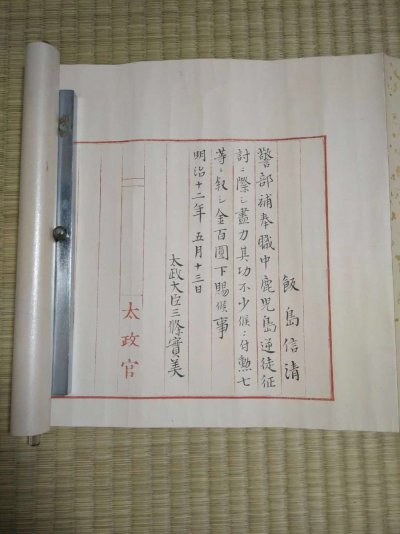 飯島信清
警部補奉職中鹿児島逆徒征
討ニ際シ盡力其功不少候ニ付勲七
等ニ叙シ金百圓下賜候事
明治十二年五月十三日
太政大臣三條實美
太政官